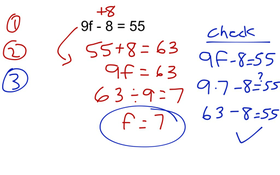 ①
②
③
+8
9f - 8 = 55
55 + 8 = 63
9f = 63
63 ÷ 9 = 7
f = 7
check
9f - 8 = 55
?
9 · 7 - 8 = 55
63 - 8 = 55
✓